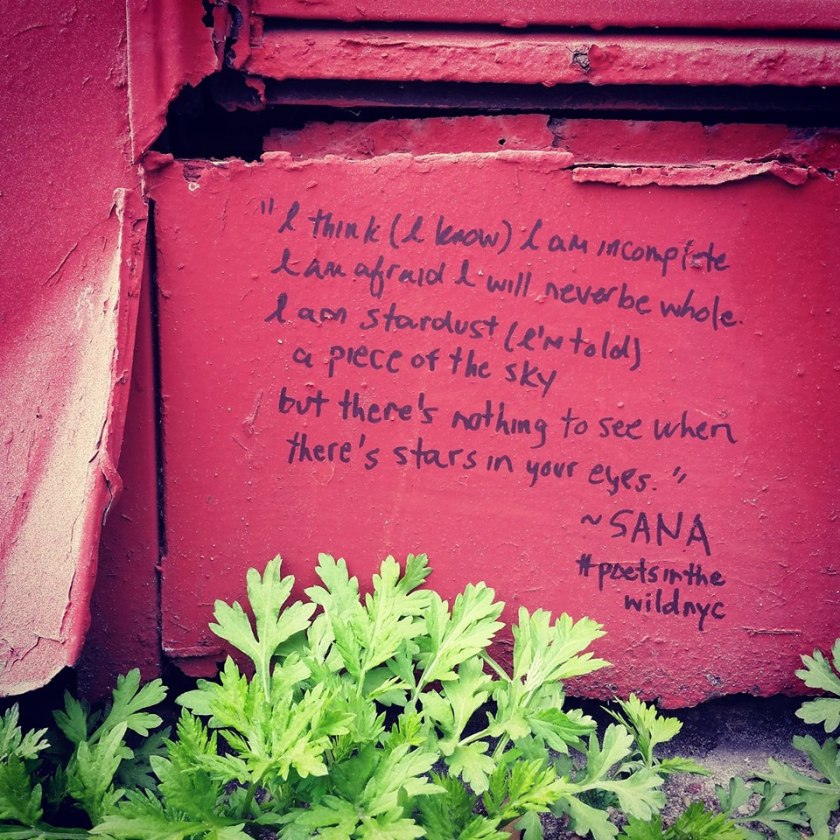 "I think (I know) I am incomplete
I am afraid I will never be whole.
I am stardust (I'm told)
a piece of the sky
but there's nothing to see when
there's stars in your eyes."
~SANA
#poetsinthe
wildnyc